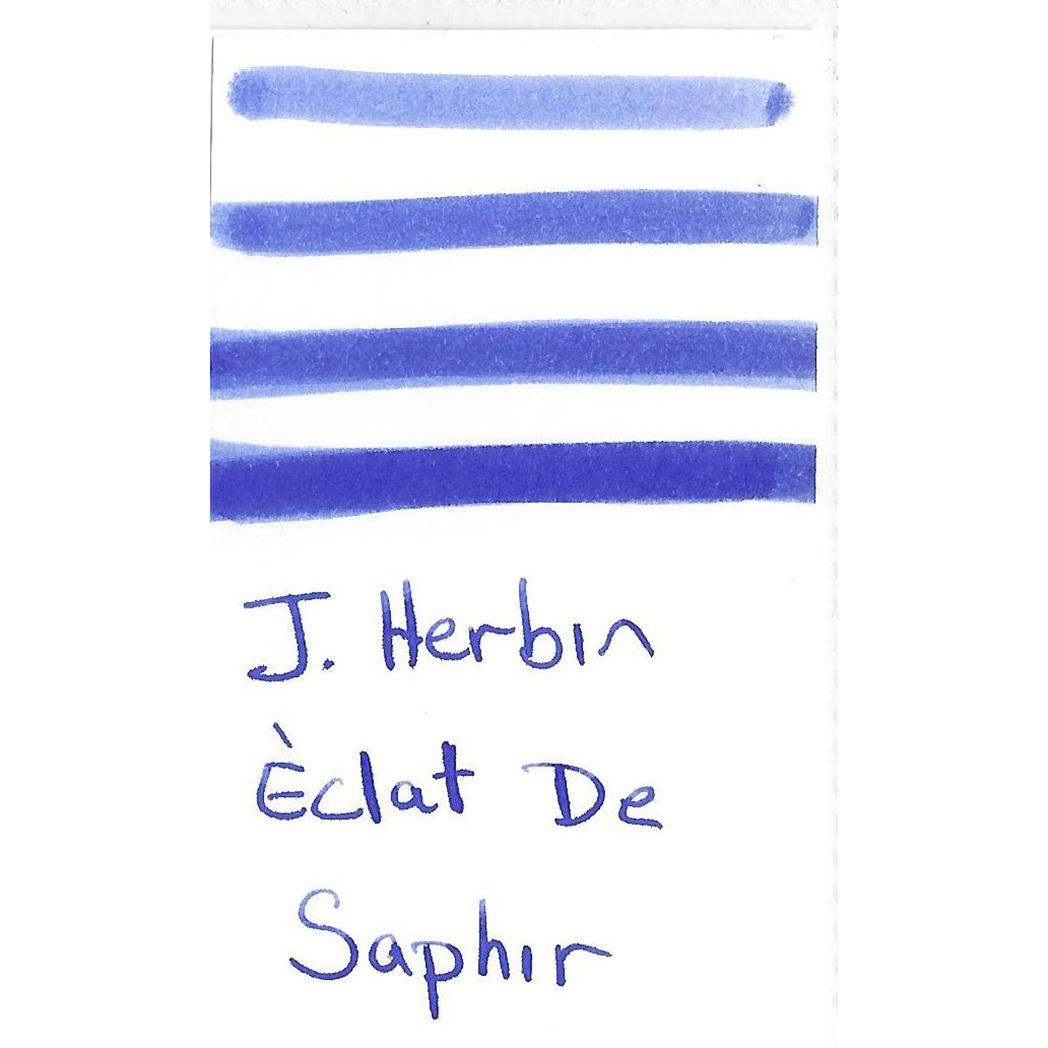 J. Herbin
Èclat De
Saphir